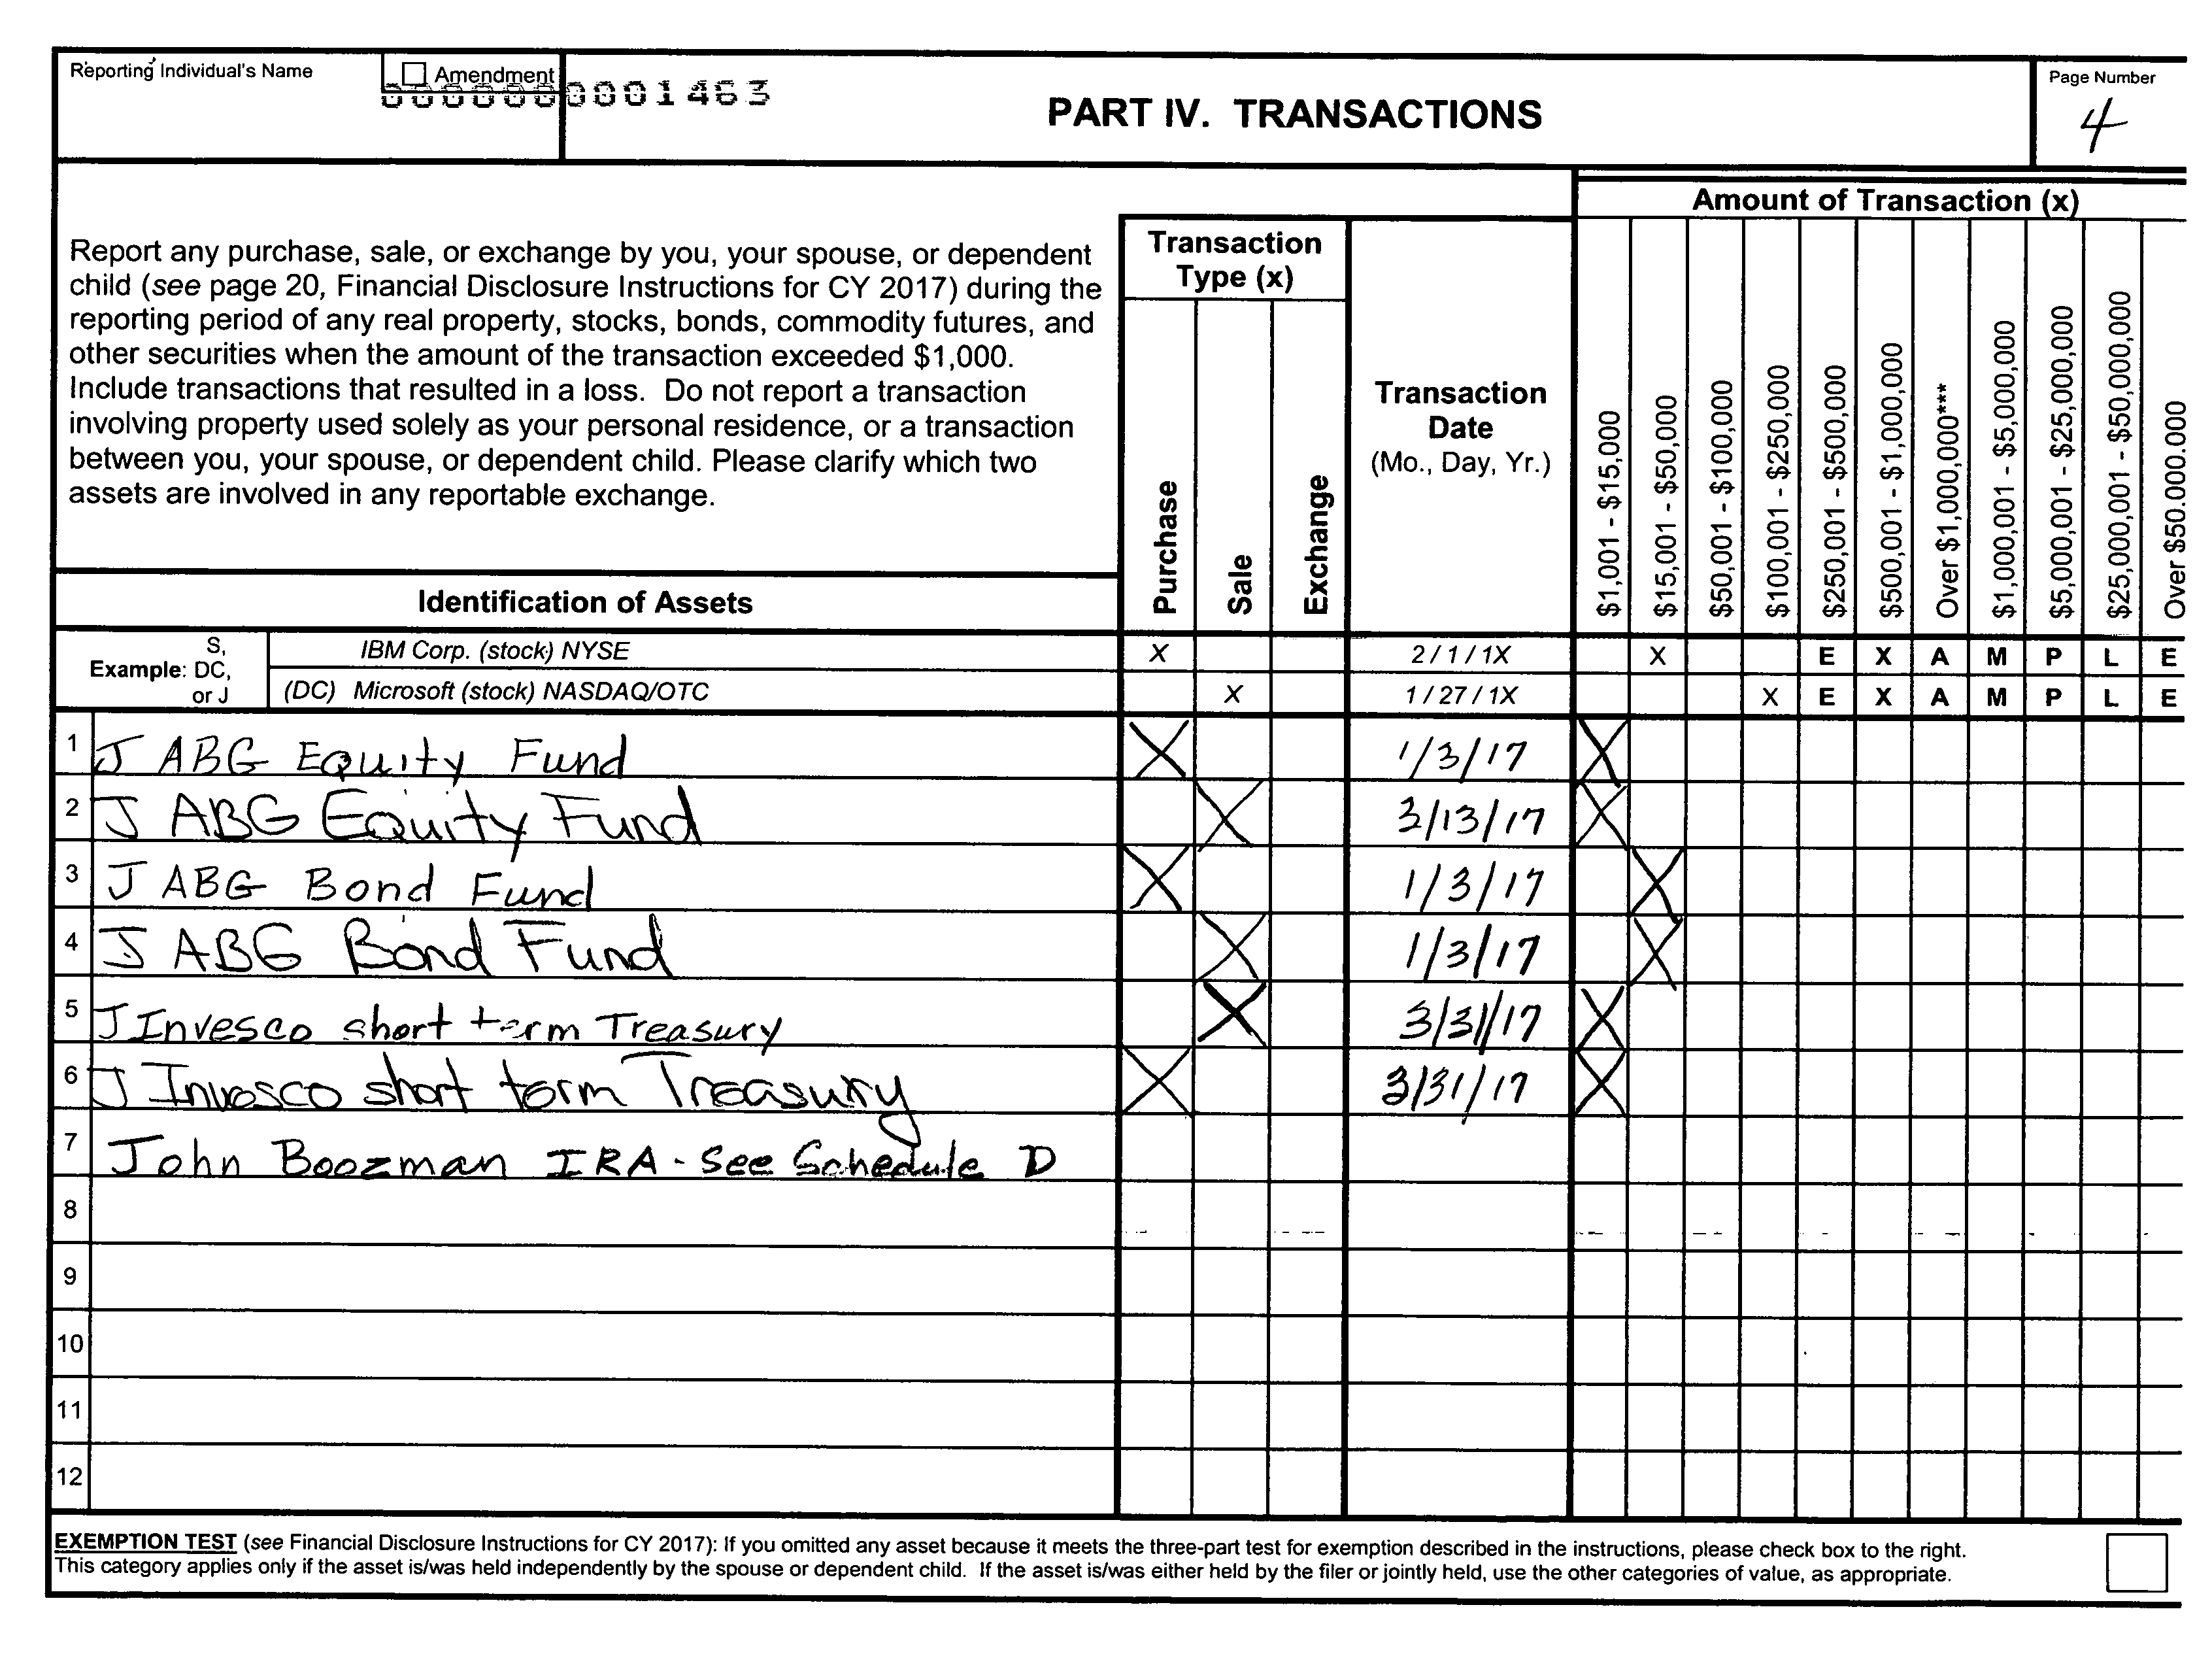 Reporting Individual's Name
Amendment
0000000001463
PART IV. TRANSACTIONS
Page Number
4
Report any purchase, sale, or exchange by you, your spouse, or dependent
child (see page 20, Financial Disclosure Instructions for CY 2017) during the
reporting period of any real property, stocks, bonds, commodity futures, and
other securities when the amount of the transaction exceeded $1,000.
Include transactions that resulted in a loss. Do not report a transaction
involving property used solely as your personal residence, or a transaction
between you, your spouse, or dependent child. Please clarify which two
assets are involved in any reportable exchange.
Identification of Assets
Transaction
Type (x)
Purchase
Sale
Exchange
Transaction
Date
(Mo., Day, Yr.)
Amount of Transaction (x)
$1,001 - $15,000
$15,001 - $50,000
$50,001 - $100,000
$100,001 - $250,000
$250,001 - $500,000
$500,001 - $1,000,000
Over $1,000,000***
$1,000,001 - $5,000,000
$5,000,001 - $25,000,000
$25,000,001 - $50,000,000
Over $50.000.000
S,
Example: DC,
or J
IBM Corp. (stock) NYSE X 2 / 1 / 1X X E X A M P L E
(DC) Microsoft (stock) NASDAQ/OTC X 1 / 27 / 1X X E X A M P L E
1 J ABG Equity Fund X 1/3/17 X
2 J ABG Equity Fund X 3/13/17 X
3 J ABG Bond Fund X 1/3/17 X
4 J ABG Bond Fund X 1/3/17 X
5 J Invesco short term Treasury X 3/31/17 X
6 J Invesco short term Treasury X 3/31/17 X
7 John Boozman IRA - See Schedule D
8
9
10
11
12
EXEMPTION TEST (see Financial Disclosure Instructions for CY 2017): If you omitted any asset because it meets the three-part test for exemption described in the instructions, please check box to the right.
This category applies only if the asset is/was held independently by the spouse or dependent child. If the asset is/was either held by the filer or jointly held, use the other categories of value, as appropriate.